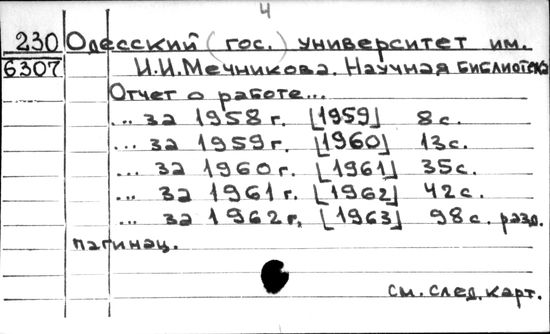 4
230 Одесский (гос.) университет им.
6307 И.И.Мечникова. Научная библиотека
Отчет о работе...
... за 1958 г. [1959] 8 с.
... за 1959 г. [1960] 13 с.
... за 1960 г. [1961] 35 с.
... за 1961 г. [1962] 42 с.
... за 1962 г. [1963] 98 с. разд.
пагинац.
см. след. карт.